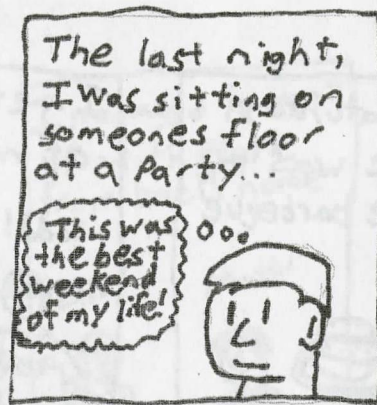 The last night,
I was sitting on
someones floor
at a Party...
This was
the best
weekend
of my life!